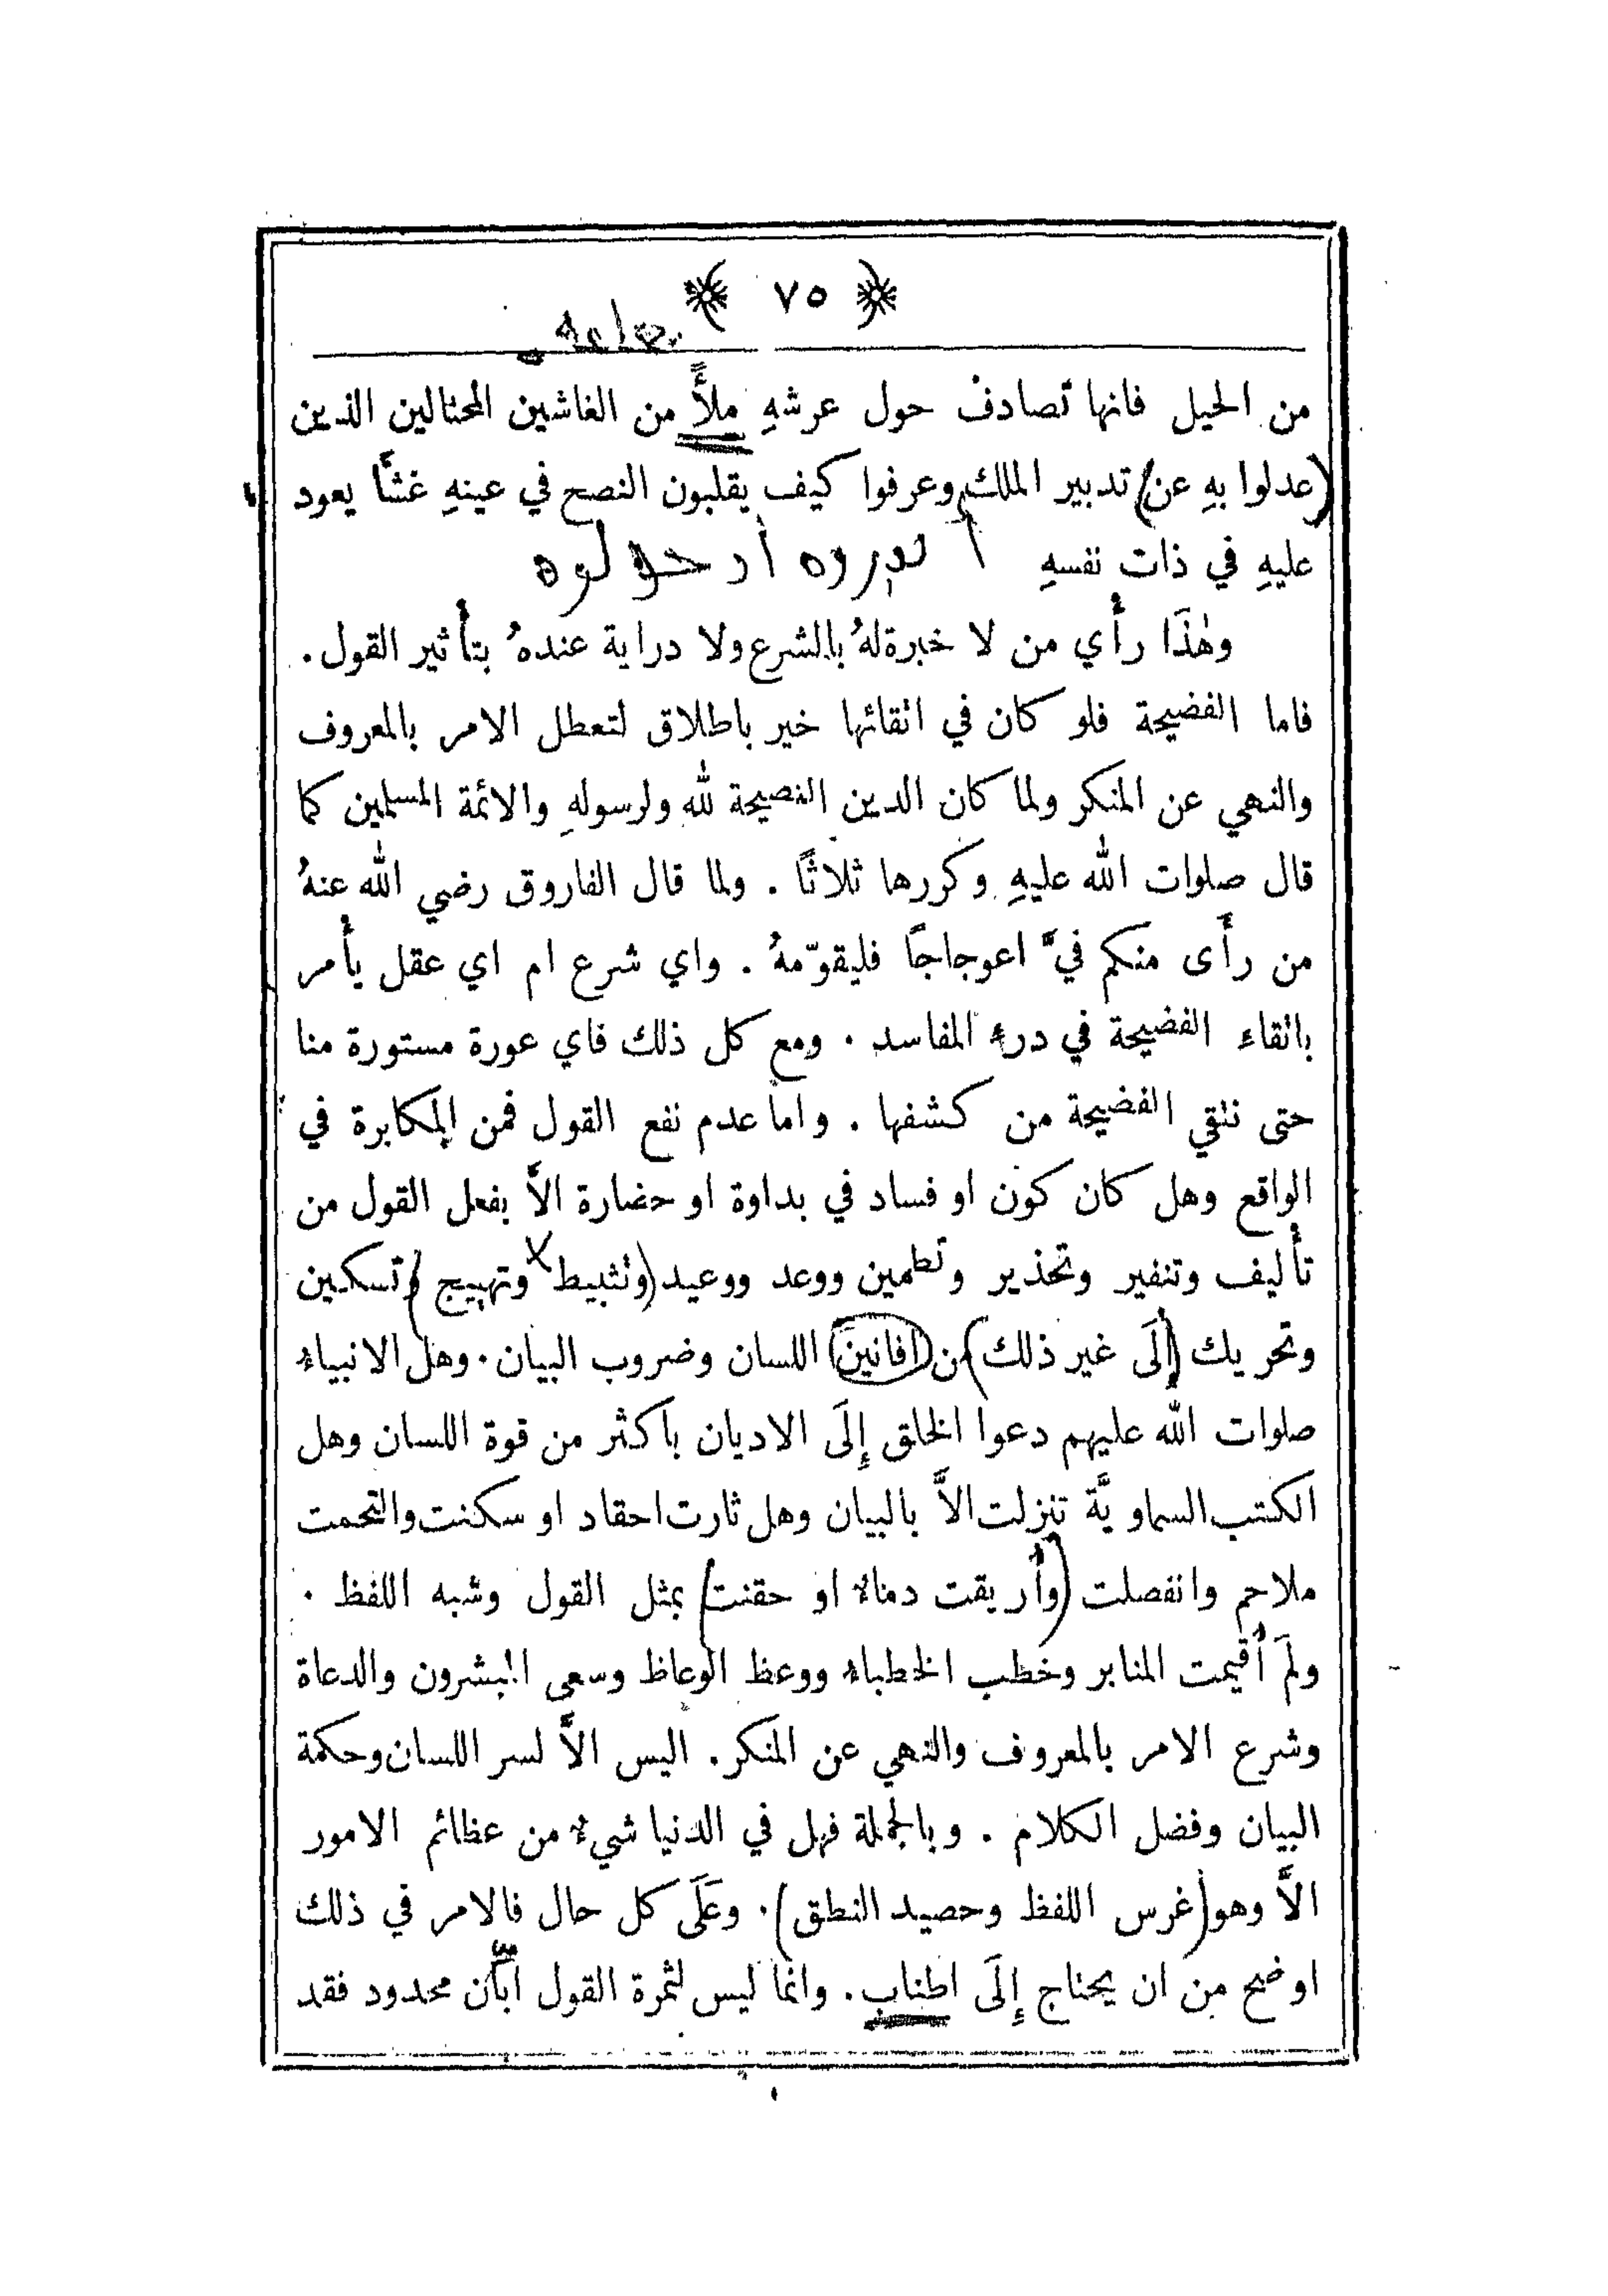 ﴿ ٧٥ ﴾
من الحيل فانها تصادف حول عرشهِ ملأً من الغاشين المحتالين الذين
(عدلوا بهِ عن) تدبير الملك وعرفوا كيف يقلبون النصح في عينهِ غشًّا يعود
عليهِ في ذات نفسهِ
وهٰذَا رأْي من لا خبرة لهُ بالشرع ولا دراية عندهُ بتأْثير القول .
فاما الفضيحة فلو كان في اتقائها خير باطلاق لتعطل الامر بالمعروف
والنهي عن المنكر ولما كان الدين النصيحة لله ولرسولهِ والائمة المسلمين كما
قال صلوات الله عليهِ وكررها ثلاثًا . ولما قال الفاروق رضي الله عنهُ
من رأَى منكم فيَّ اعوجاجًا فليقوّمهُ . واي شرع ام اي عقل يأْمر
باتقاء الفضيحة في درء المفاسد . ومع كل ذلك فاي عورة مستورة منا
حتى نتقي الفضيحة من كشفها . واما عدم نفع القول فمن المكابرة في
الواقع وهل كان كون او فساد في بداوة او حضارة الاَّ بفعل القول من
تأْليف وتنفير وتحذير وتطمين ووعد ووعيد (وتثبيط وتهييج) وتسكين
وتحريك (إِلَى غير ذلك) من افانين اللسان وضروب البيان . وهل الانبياء
صلوات الله عليهم دعوا الخلق إِلَى الاديان باكثر من قوة اللسان وهل
الكتب السماويَّة تنزلت الاَّ بالبيان وهل ثارت احقاد او سكنت والتحمت
ملاحم وانفصلت (وأُريقت دماءٌ او حقنت) بمثل القول وشبه اللفظ .
ولمَ أُقيمت المنابر وخطب الخطباء ووعظ الوعاظ وسعى المبشرون والدعاة
وشرع الامر بالمعروف والنهي عن المنكر . اليس الاَّ لسر اللسان وحكمة
البيان وفضل الكلام . وبالجملة فهل في الدنيا شيءٌ من عظائم الامور
الاَّ وهو (غرس اللفظ وحصيد النطق) . وعَلَى كل حال فالامر في ذلك
اوضح من ان يحتاج إِلَى اطناب . وانما ليس لثمرة القول ابّان محدود فقد